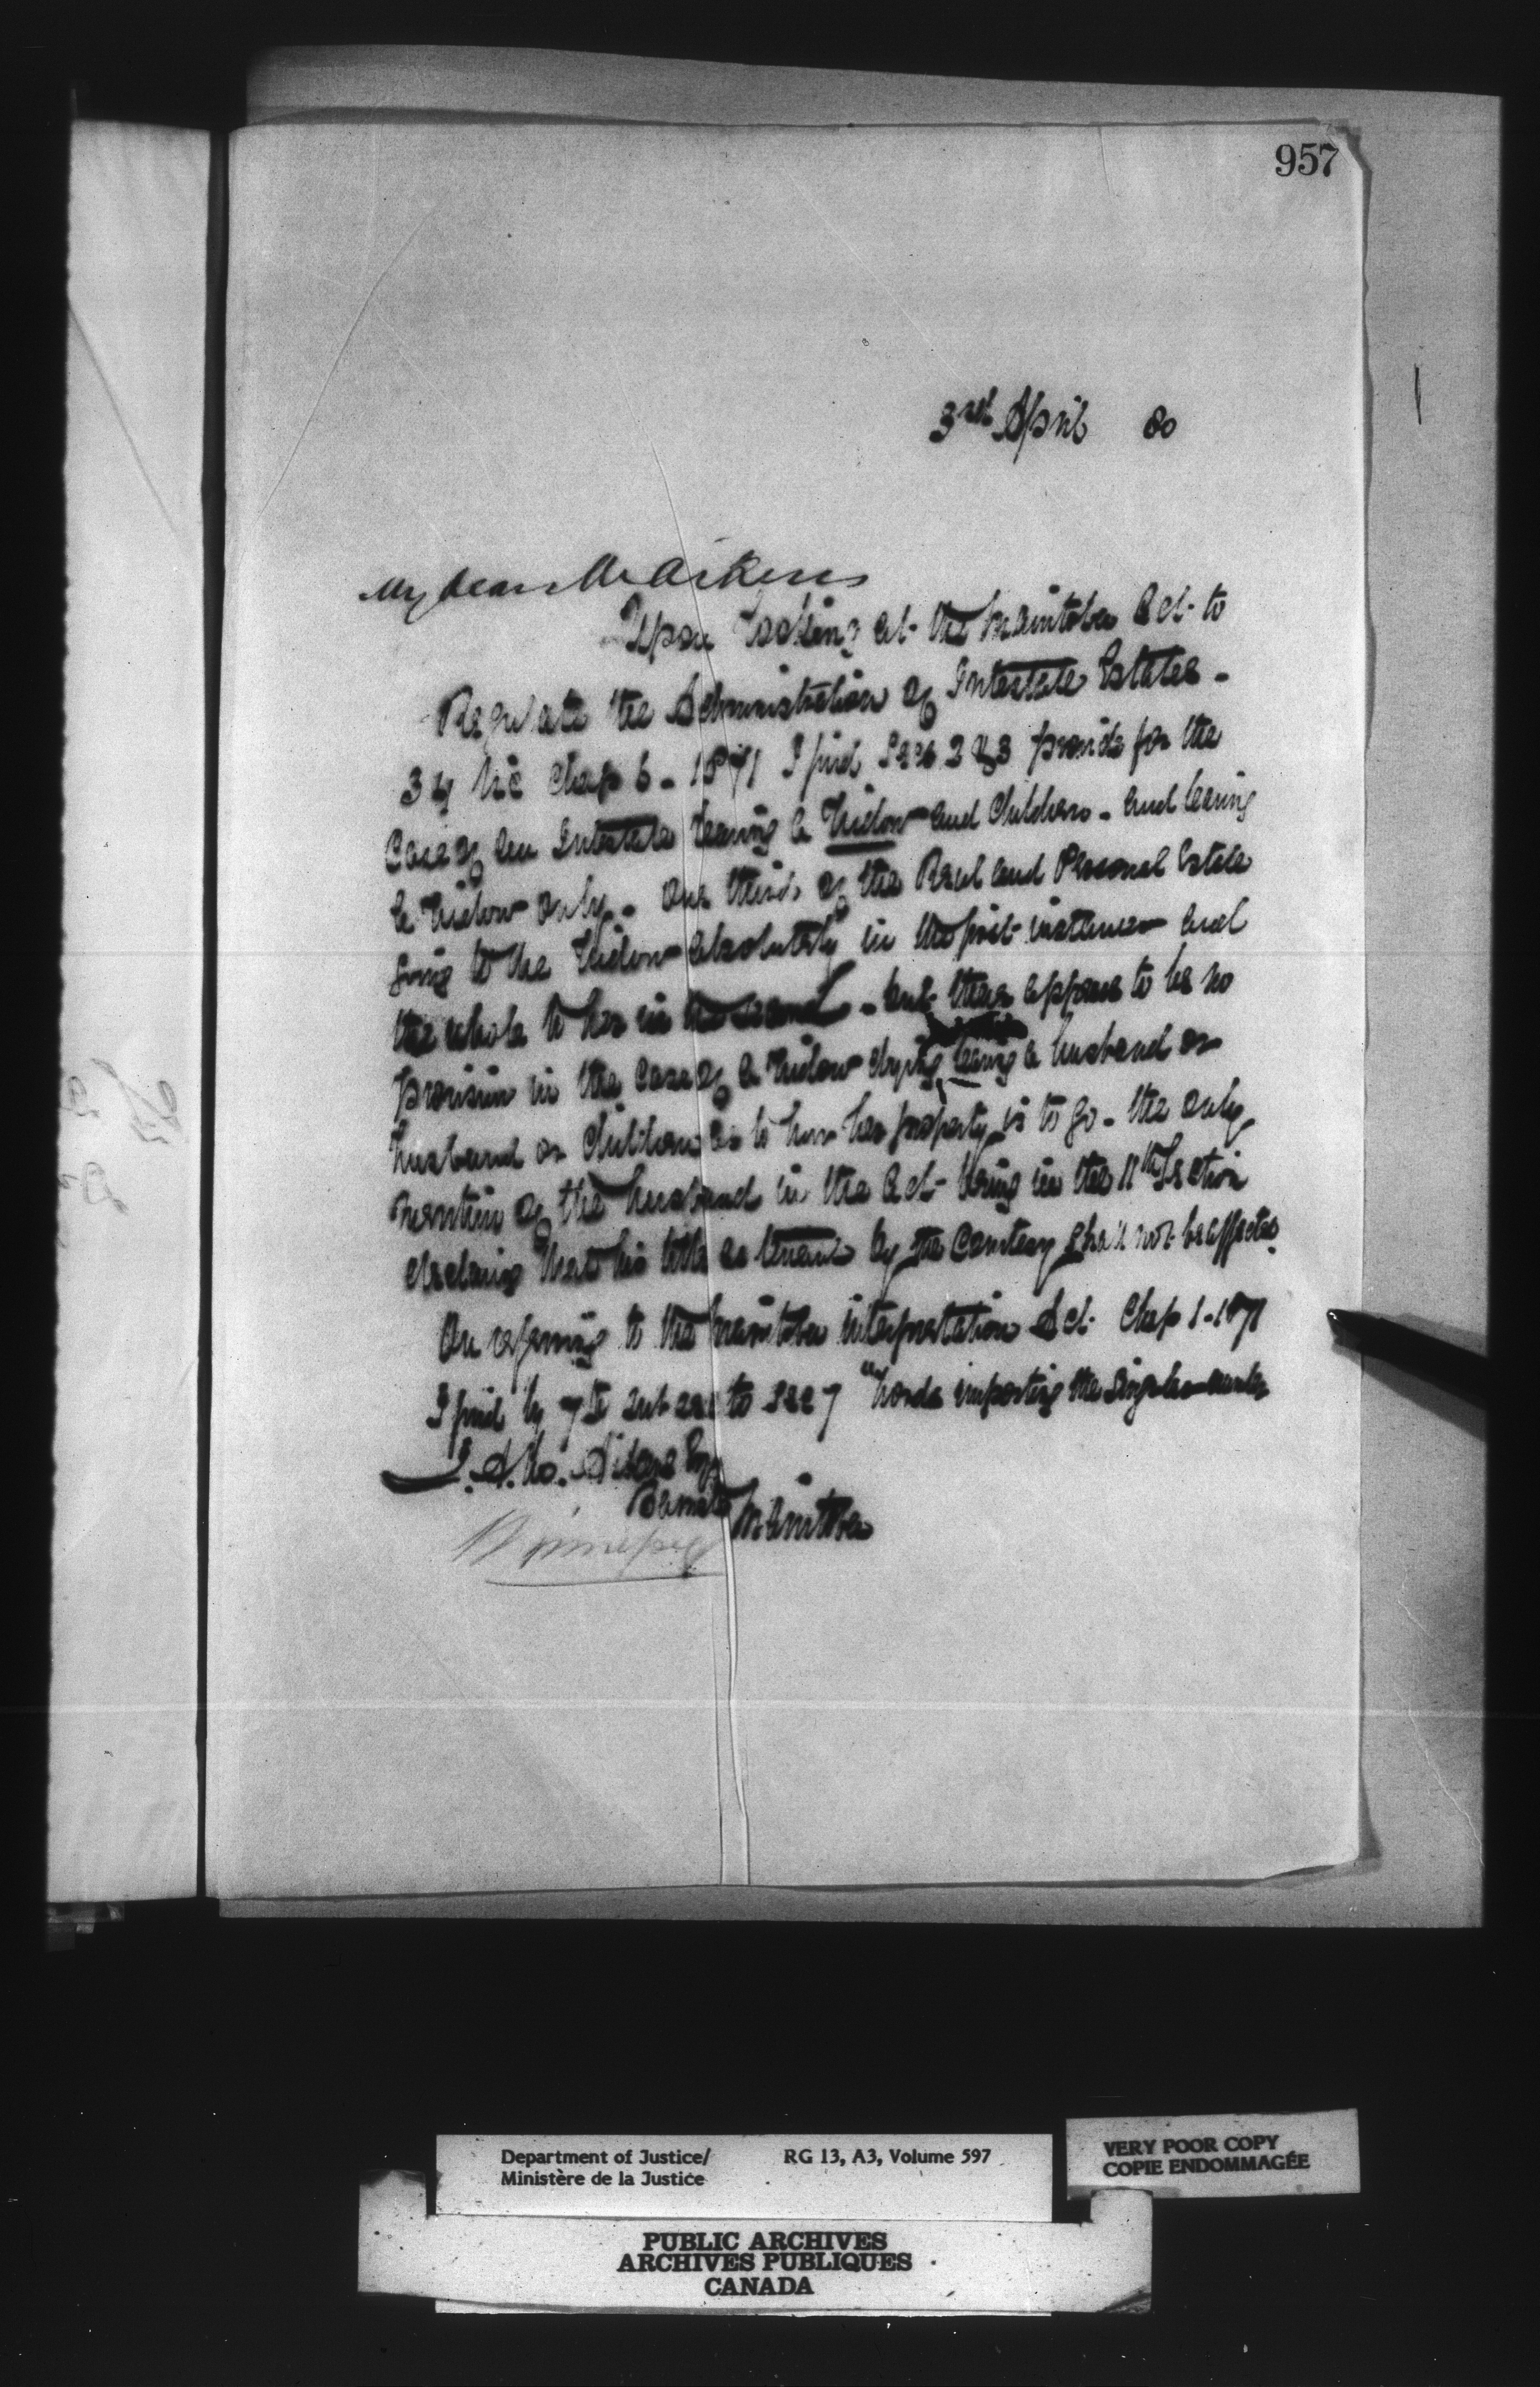 957
3rd April 80
My dear Mr Aikins
Upon looking at the Manitoba Act to
Regulate the Administration of Intestate Estates -
34 Vic Chap 6 - 1871 I find Secs 2 & 3 provide for the
Case of an Intestate leaving a Widow and Children - and leaving
a Widow only - one third of the Real and Personal Estate
going to the Widow absolutely in the first instance and
the whole to her in the second - but there appears to be no
provision in the case of a Widow dying leaving a husband or
husband or Children as to how her property is to go - the only
mention of the husband in the Act being in the 11th Section
declaring that his title as tenant by the Courtesy shall not be affected.
On referring to the Manitoba interpretation Act Chap 1 - 1871
I find by 7th Sub sec to Sec 7 "Words importing the Singular number
J. A. M. Aikins Esq
Barrister
Manitoba
Winnipeg
Department of Justice/ RG 13, A3, Volume 597
Ministère de la Justice
VERY POOR COPY
COPIE ENDOMMAGÉE
PUBLIC ARCHIVES
ARCHIVES PUBLIQUES
CANADA